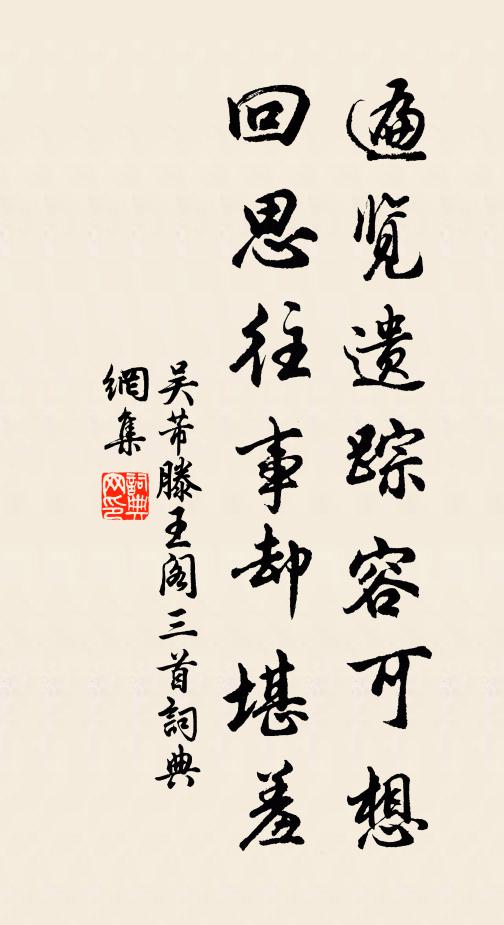 遍览遗踪容可想
回思往事却堪羞
吴芾滕王阁三首詞典
網集
詞典
网印